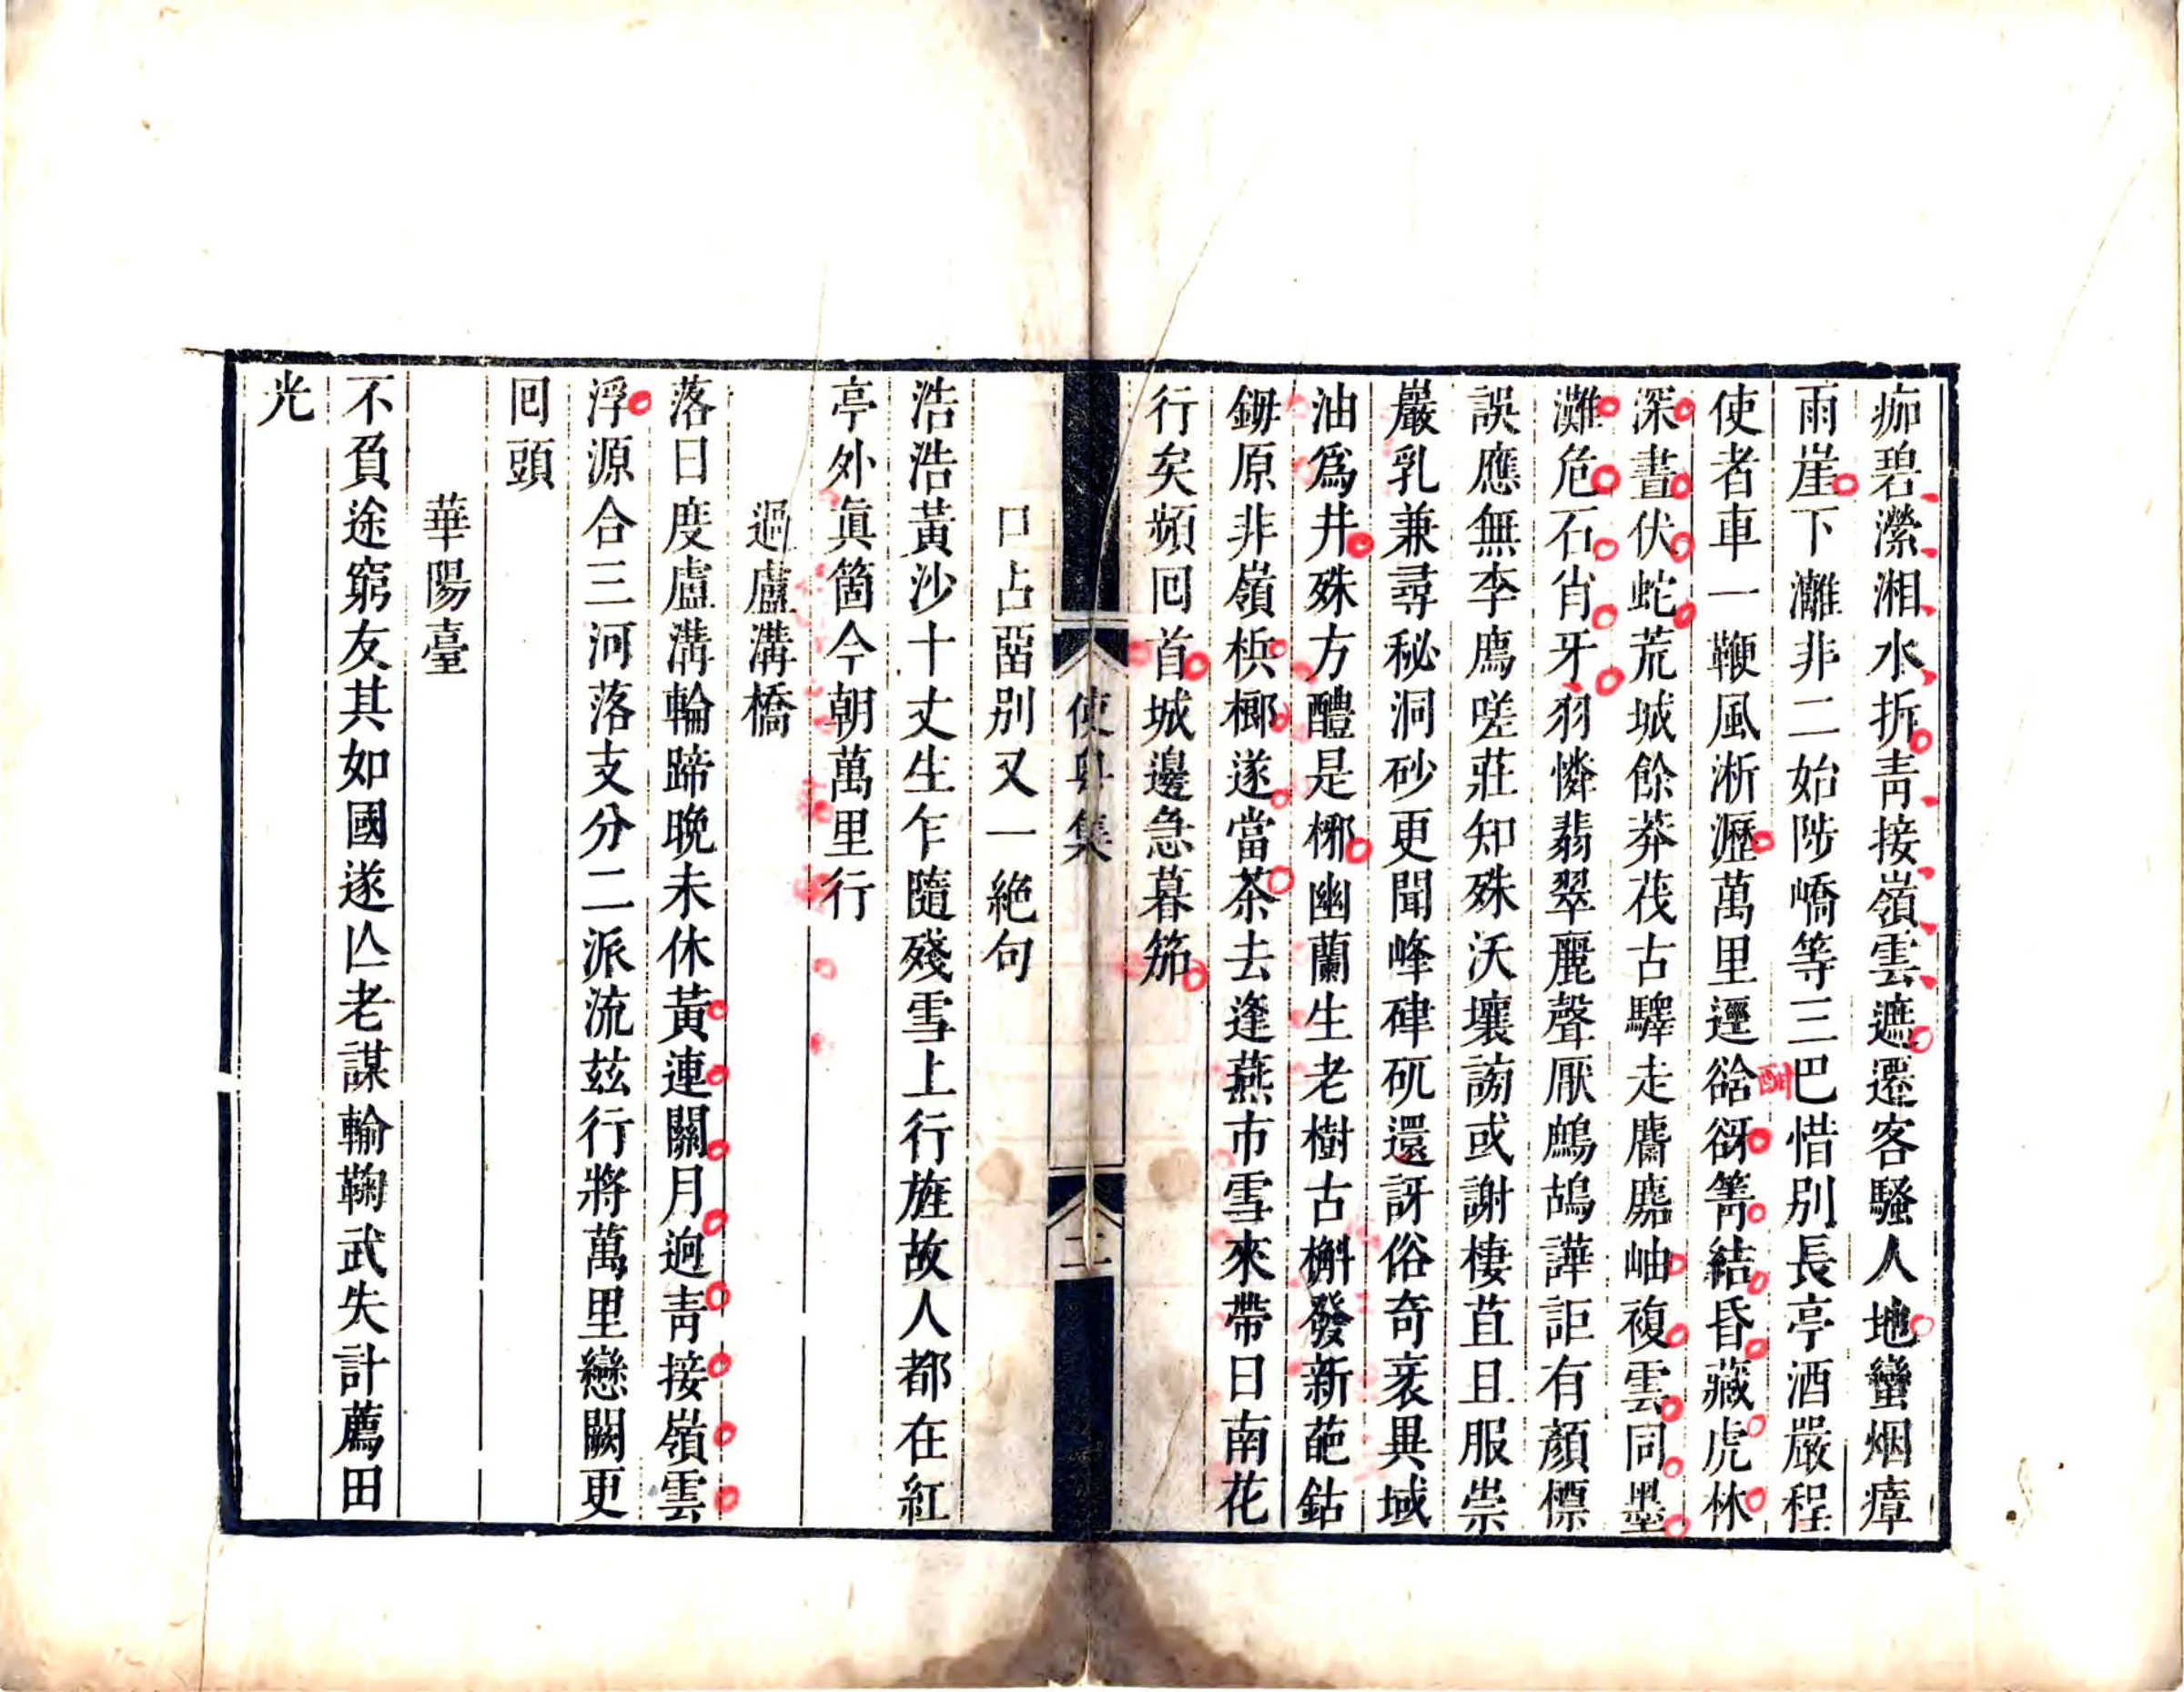 痂碧瀠湘水折青接嶺雲遮遷客騷人地蠻烟瘴
雨崖下灕非二始陟嶠等三巴惜别長亭酒嚴程
使者車一鞭風淅瀝萬里逕谽谺箐結昏藏虎林
深晝伏蛇荒城餘莽茷古驛走麕麚岫複雲同墨
灘危石肖牙羽憐翡翠麗聲厭鷓鴣譁詎有顏標
誤應無李廌嗟莊知殊沃壤謭或謝棲苴且服崇
嚴乳兼尋秘洞砂更聞峰硉矹還訝俗奇衺異域
油爲井殊方醴是梛幽蘭生老樹古槲發新葩鈷
鉧原非嶺梹榔遂當茶去逢燕市雪來帶日南花
行矣頻囘首城邊急暮笳
口占畱别又一絶句
浩浩黃沙十丈生乍隨殘雪上行旌故人都在紅
亭外眞箇今朝萬里行
過盧溝橋
落日度盧溝輪蹄晚未休黃連關月逈青接嶺雲
浮源合三河落支分二派流玆行將萬里戀闕更
囘頭
華陽臺
不負途窮友其如國遂亾老謀輸鞠武失計薦田
光
使粵集
二